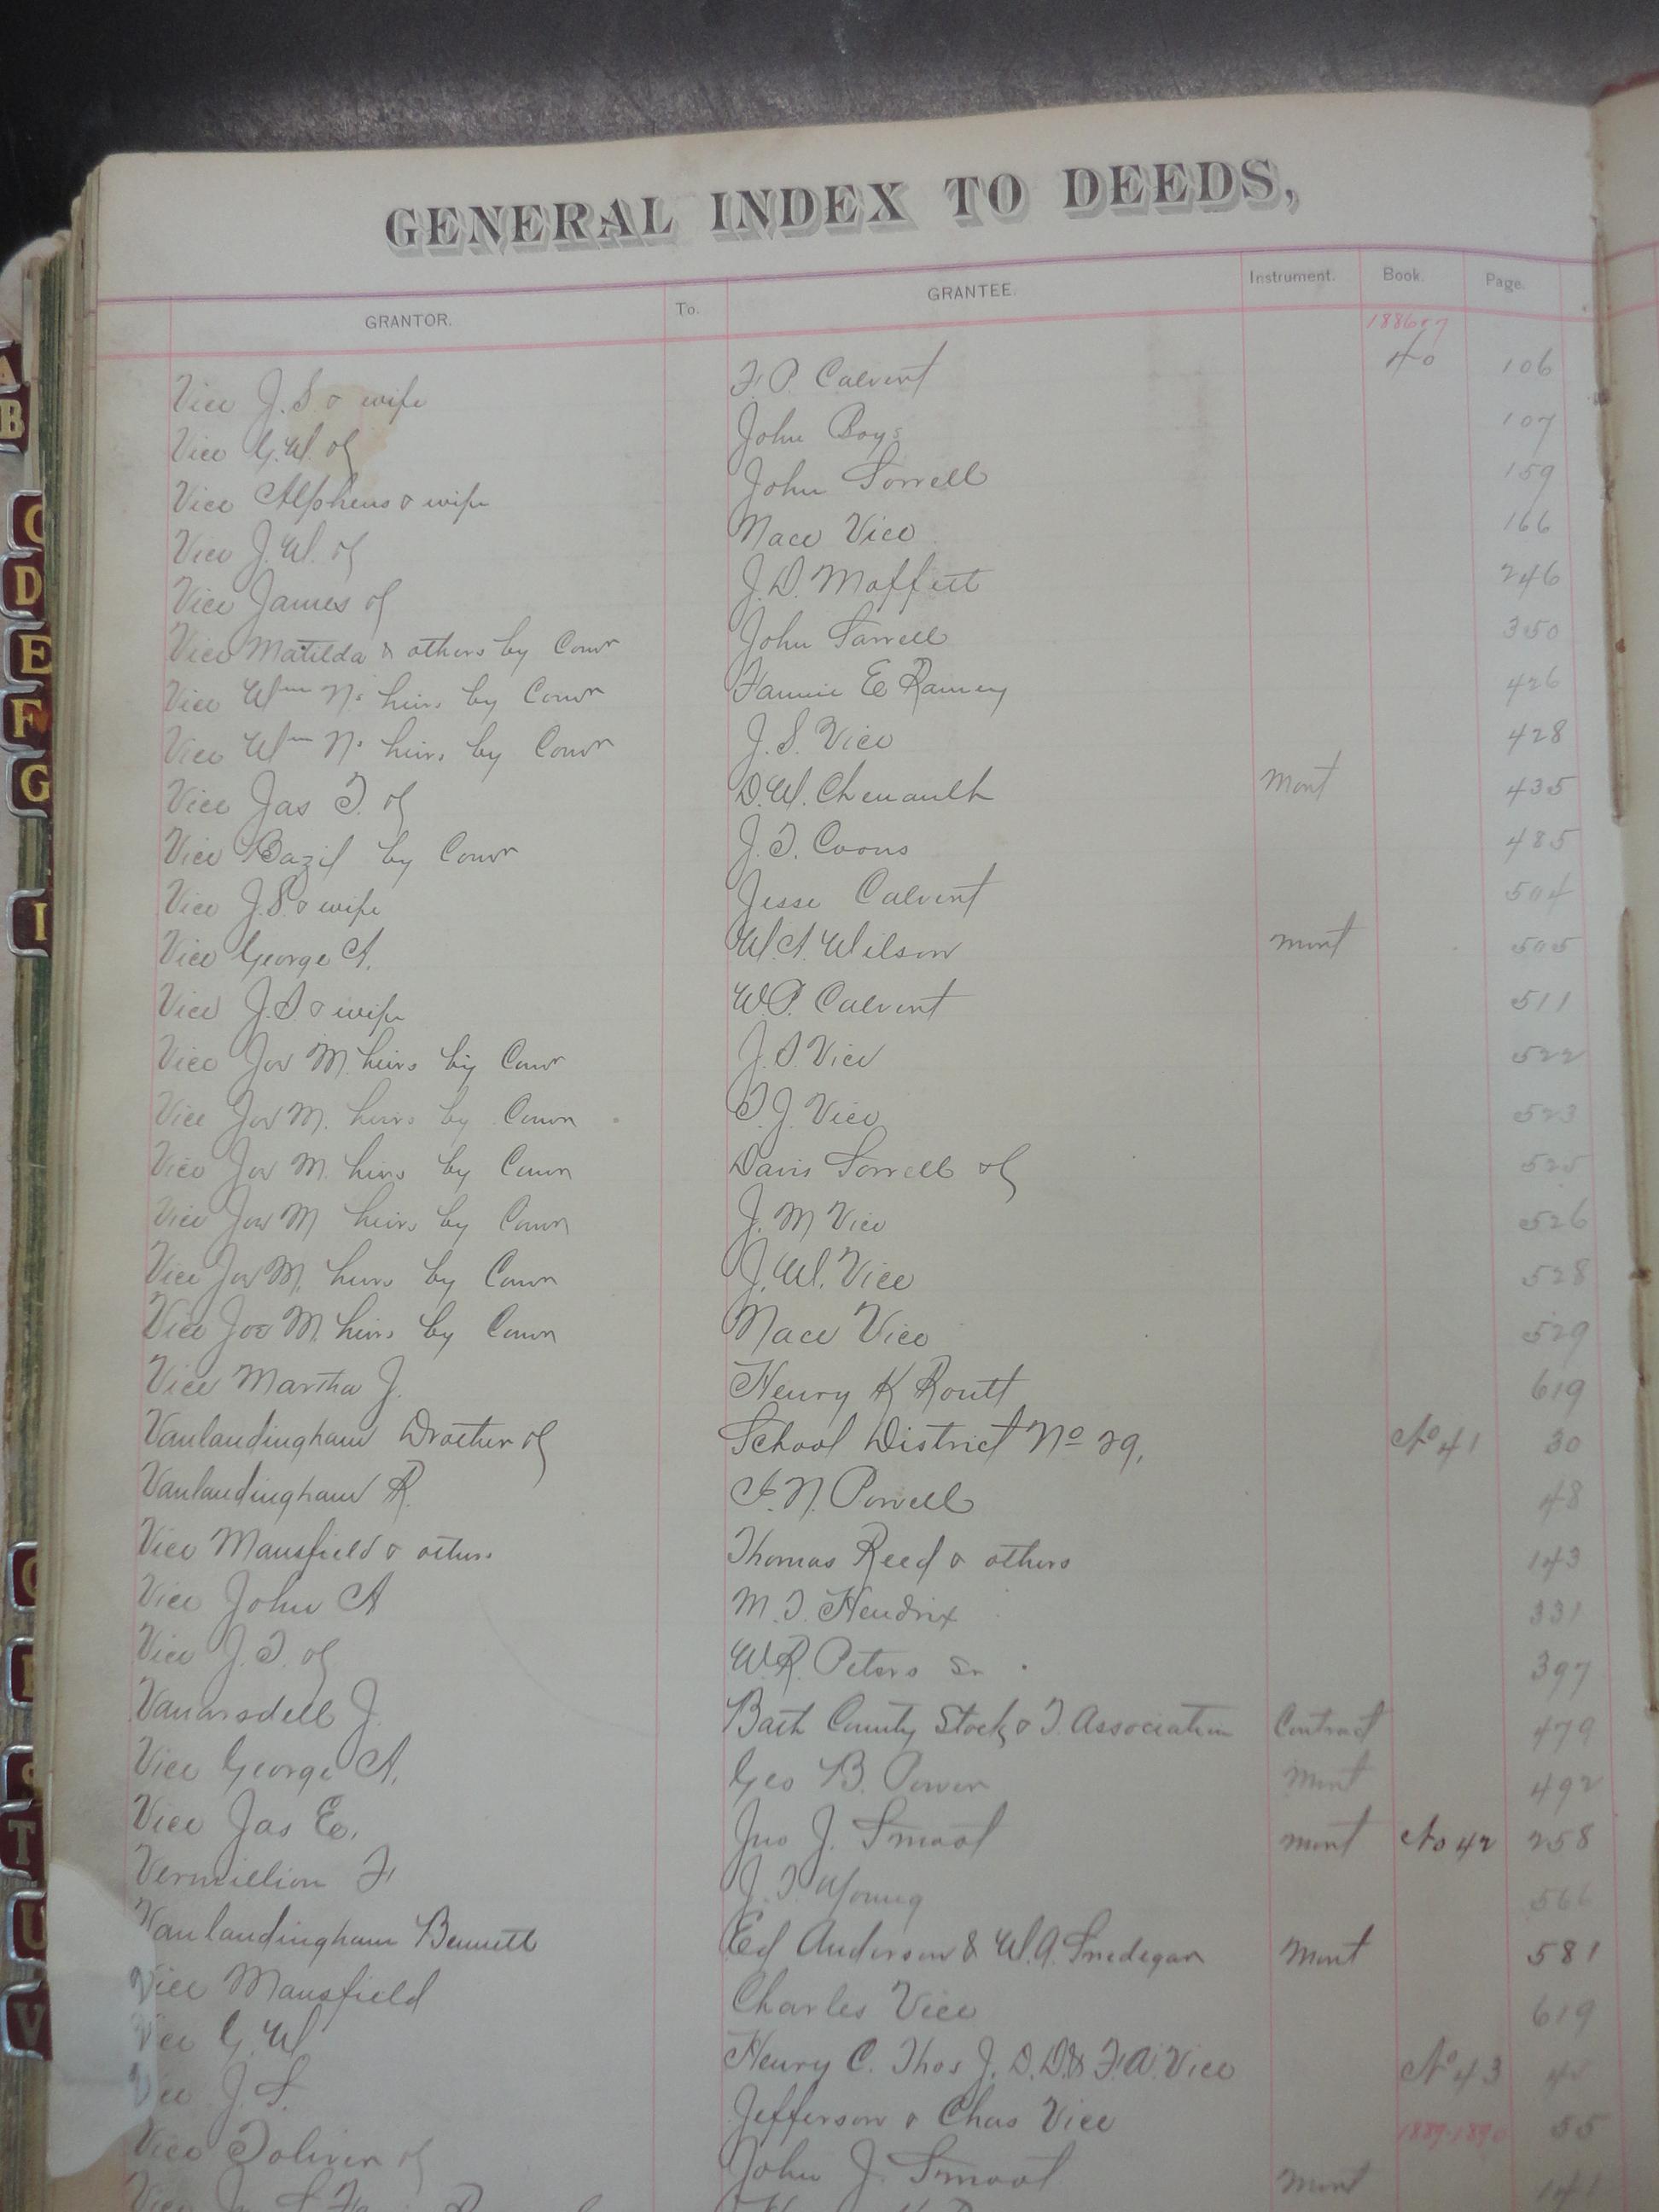 GENERAL INDEX TO DEEDS,
GRANTOR. To. GRANTEE. Instrument. Book. Page.
1886 & 7
Vice J. S. & wife F. P. Calvert 40 106
Vice G. W. of John Boys 107
Vice Alpheus & wife John Sorrell 159
Vice J. W. of Nace Vice 166
Vice James of J. D. Moffett 246
Vice Matilda & others by Comr John Sorrell 350
Vice Wm N's heirs by Comr Fannie E Ramey 426
Vice Wm N's heirs by Comr J. S. Vice 428
Vice Jas T. of D. W. Chenault Mort 435
Vice Bazil by Comr J. T. Coons 485
Vice J. S. & wife Jesse Calvert 504
Vice George A. W. A. Wilson Mort 505
Vice J. S. & wife W. P. Calvert 511
Vice Jos M. heirs by Comr J. S. Vice 522
Vice Jos M. heirs by Comr T. J. Vice 523
Vice Jos M. heirs by Comr Davis Sorrell of 525
Vice Jos M heirs by Comr J. M Vice 526
Vice Jos M. heirs by Comr J. W. Vice 528
Vice Jos M. heirs by Comr Nace Vice 529
Vice Martha J. Henry K Routt 619
Vanlandingham of School District No 29, No 41 30
Vanlandingham R. I. N. Powell 48
Vice Mansfield & others Thomas Reed & others 143
Vice John A M. T. Hendrix 331
Vice J. T. of W. R. Peters Sr 397
Vanarsdell J. Bath County Stock & T. Association Contract 479
Vice George A. Geo B. Power Mort 492
Vice Jas E. Jno J. Smoot Mort No 42 258
Vermillion F J. T. Young 566
Vanlandingham Bennett Ed Anderson & W. A. Smedegar Mort 581
Vice Mansfield Charles Vice 619
Vice G. W. Henry C. Thos J. D. D. & F. A. Vice No 43
Vice J. S. Jefferson & Chas Vice 1889-1890 55
Vice Toliver of John J. Smoot Mort 141
Vice